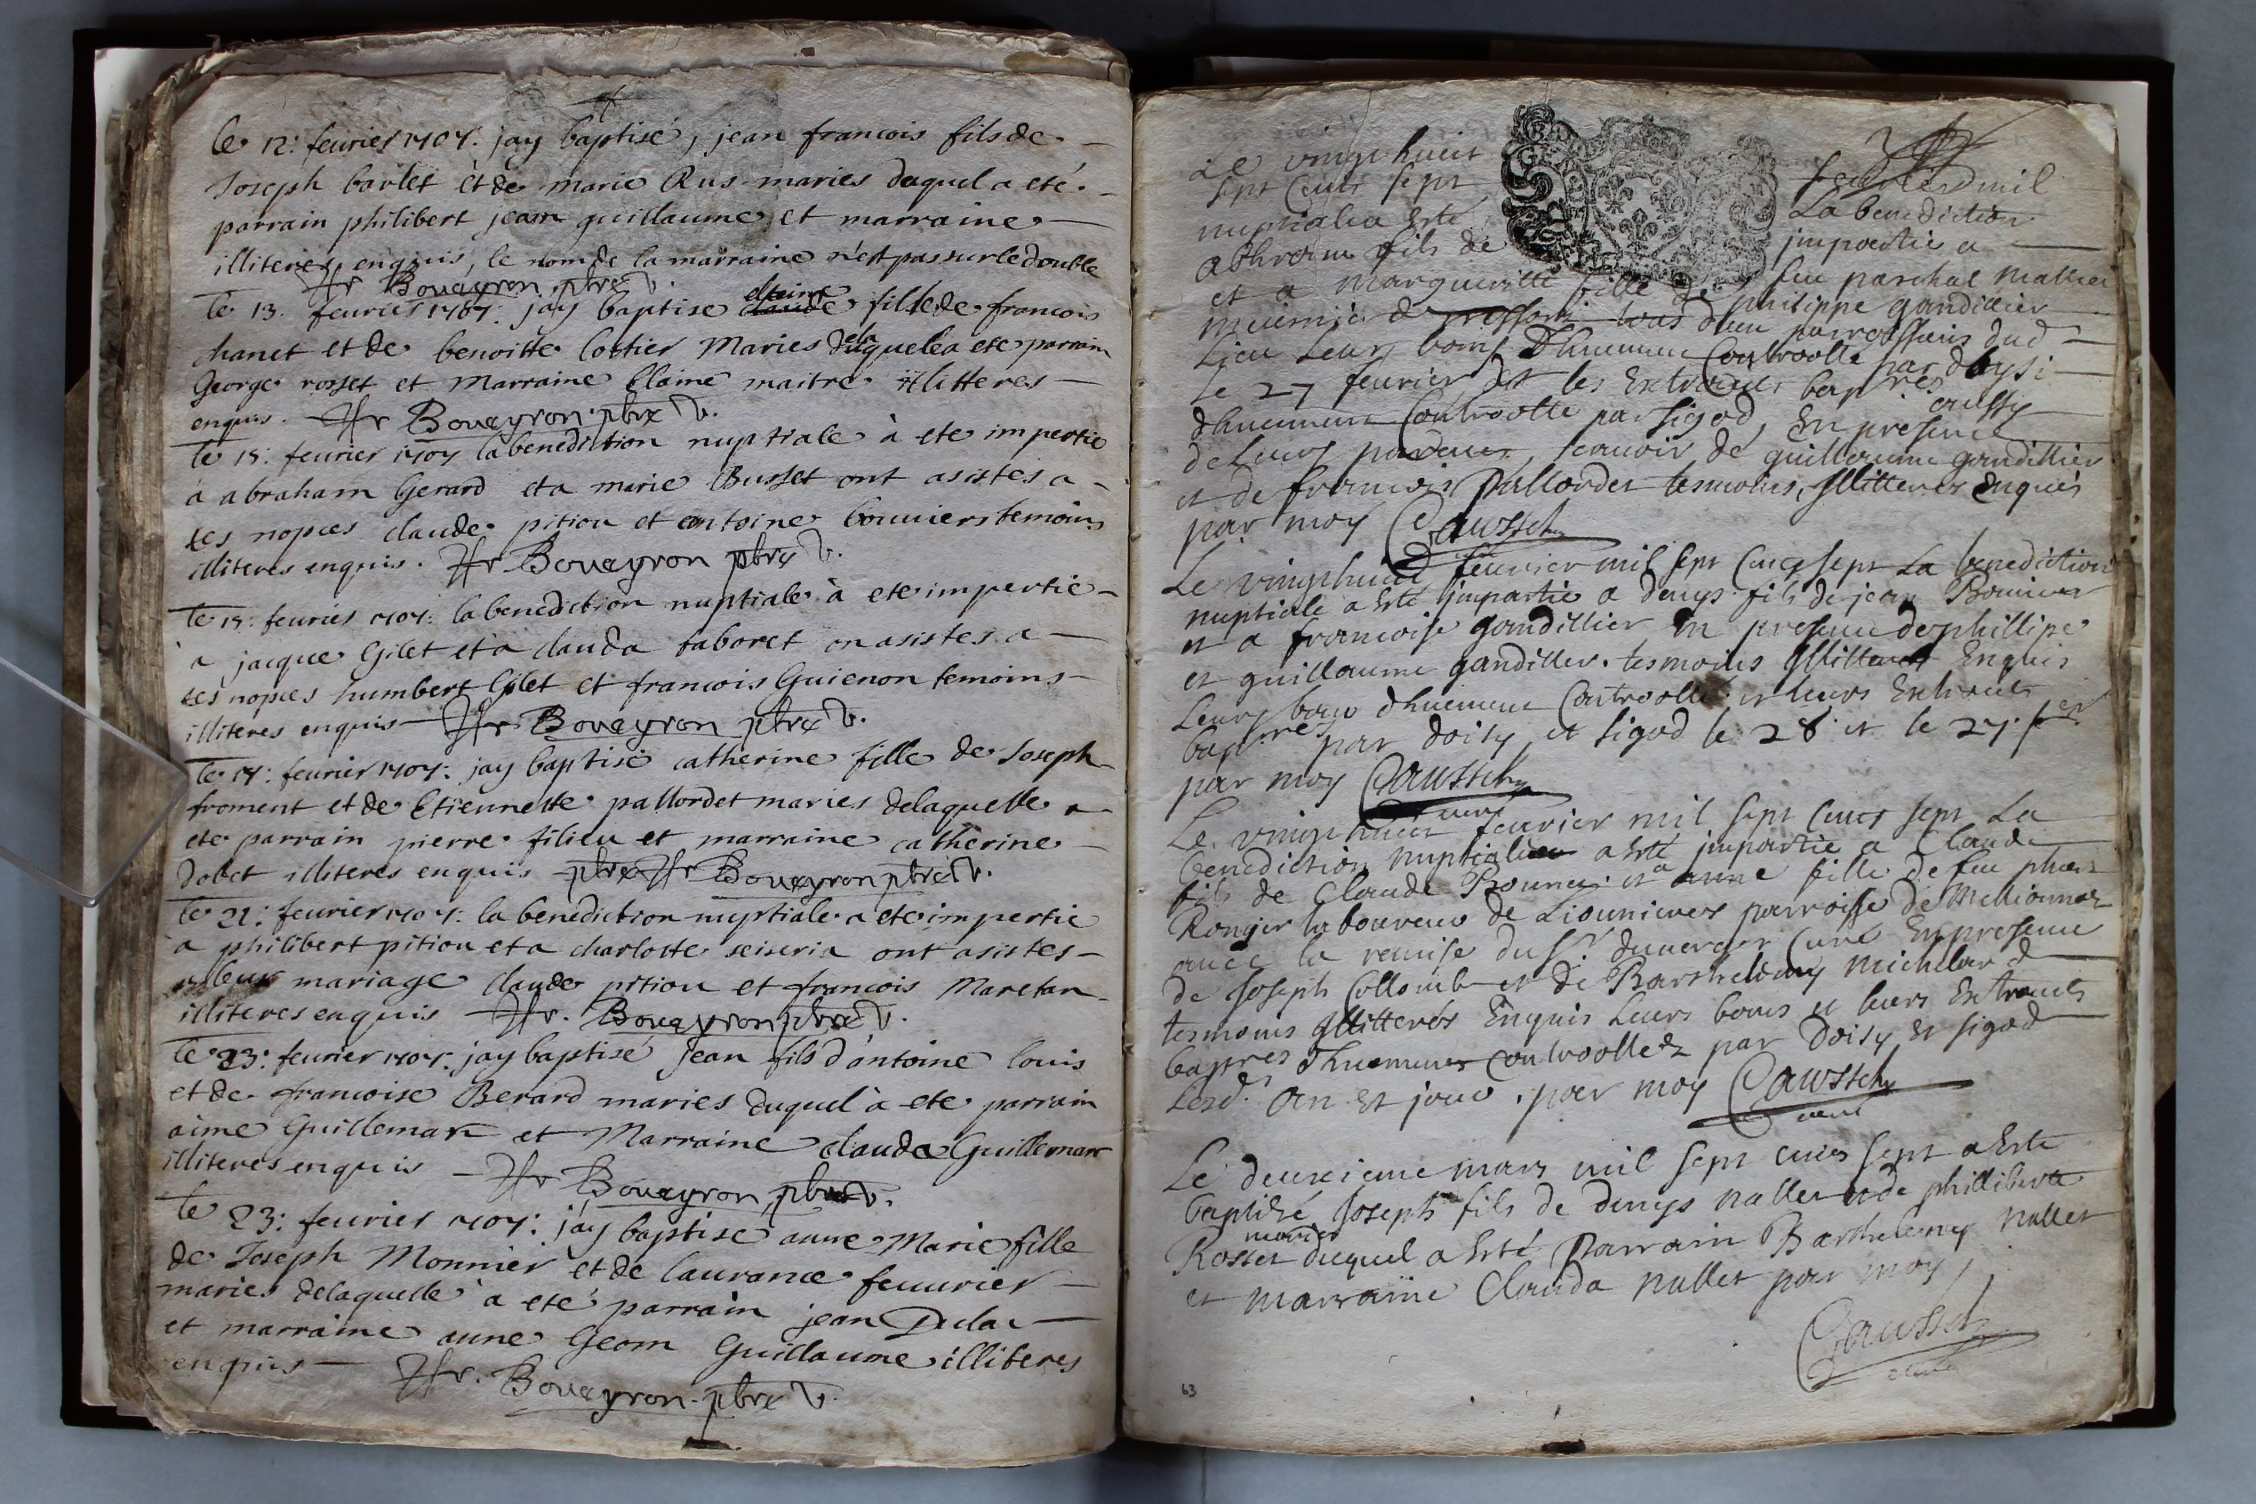 le 12: feurier 1707: jay baptisé, jean francois fils de
Joseph barlet et de marie Rus maries duquel a eté
parrain philibert jean guillaume et marraine
illiteres enquis, le nom de la marraine n'est pas sur le double
fr Boueyron ptre v.
le 13. feurier 1707: jay baptise claude fille de francois
chanet et de benoitte Cottier Maries de laquelle a ete parrain
George rosset et Marraine Claine maitre illitteres
enquis. fr Boueyron ptre v.
le 15: feurier 1707 la benediction nuptiale à ete impertie
a abraham Gerard et a marie Busset ont asistes a
ses nopces claude pitiou et antoine bouuier temoins
illiteres enquis. fr Boueyron ptre v.
le 15: feurier 1707: la benediction nuptiale à ete impertie
a jacque Gilet et a clauda taboret on asistes a
ses nopces humbert Gilet et francois Guienon temoins
illiteres enquis fr. Boueyron ptre v.
le 17: feurier 1707: jay baptisé catherine fille de Joseph
froment et de Etiennette pallordet maries de laquelle a
ete parrain pierre filieu et marraine catherine
dobet illiteres enquis ptre fr Boueyron ptre v.
le 21: feurier 1707: la benediction nuptiale a ete impertie
a philibert pitiou et a charlotte seiseria ont asistes
a leur mariage claude pitiou et francois Maretan
illiteres enquis fr. Boueyron ptre v.
le 23: feurier 1707: jay baptisé jean fils d'antoine louis
et de francoise Berard maries duquel à ete parrain
aime Guillemar et Marraine clauda Guillemar
illiteres enquis fr Boueyron ptre v.
le 23: feurier 1707: jay baptise anne Marie fille
de Joseph Monnier et de laurance feuurier
maries de laquelle à eté parrain jean Dulac
et marraine anne Geom Guillaume illiteres
enquis fr. Boueyron ptre v.
Le vingt huict feurier mil
sept Cents sept La benediction
nuptialle a Esté impartie a
Abhram fils de feu paschal Mathei
et a Margueritte fille de philippe gandillier
meusnier tous deux parroissiens dud
Lieu Leurs bans Dhuement Controolle par doysi
Le 27 feurier et les Extraicts bap^res aussy
dhuement Controolle par sigod, En presence
de Leurs parens, scauoir de guillaume gandillier
et de francois Pallordet tesmoins, Illitteres Enquis
par moy Caussch
Le vingthuict feurier mil sept Cents sept La benediction
nuptiale a Esté jmpartie a denys fils de jean Bouuier
et a francoise gandillier en presence de phillipe
et guillaume gandiller tesmoins Illitteres Enquis
Leurs bans dhuement Controolle et leurs Extraicts
bap^res par doisy et sigod le 28 et le 27
par moy Caussch
curé
Le vingt huict feurier mil sept Cents sept La
benediction nuptiale a Esté jmpartie a Claude
fils de Claude Bouuei et a anne fille de feu
Rongier laboureur de Liounieres parroisse de Mellionnaz
auec la remise du s^r. duuerger Curé En presence
de Joseph Collomb et de Barthelemy michelard
tesmoins Illitteres Enquis Leurs bans et leurs Extraicts
bap^res dhuement Controolléz par Doisy et sigod
Lesd. an et jour. par moy Caussch
curé
Le deuxieme mars mil sept cents sept a Esté
baptizé Joseph fils de denys nallet et de philliberte
Rosset mariés duquel a Esté Parrain Barthelemy nallet
et marraine Clauda nallet par moy
Caussch
curé
63